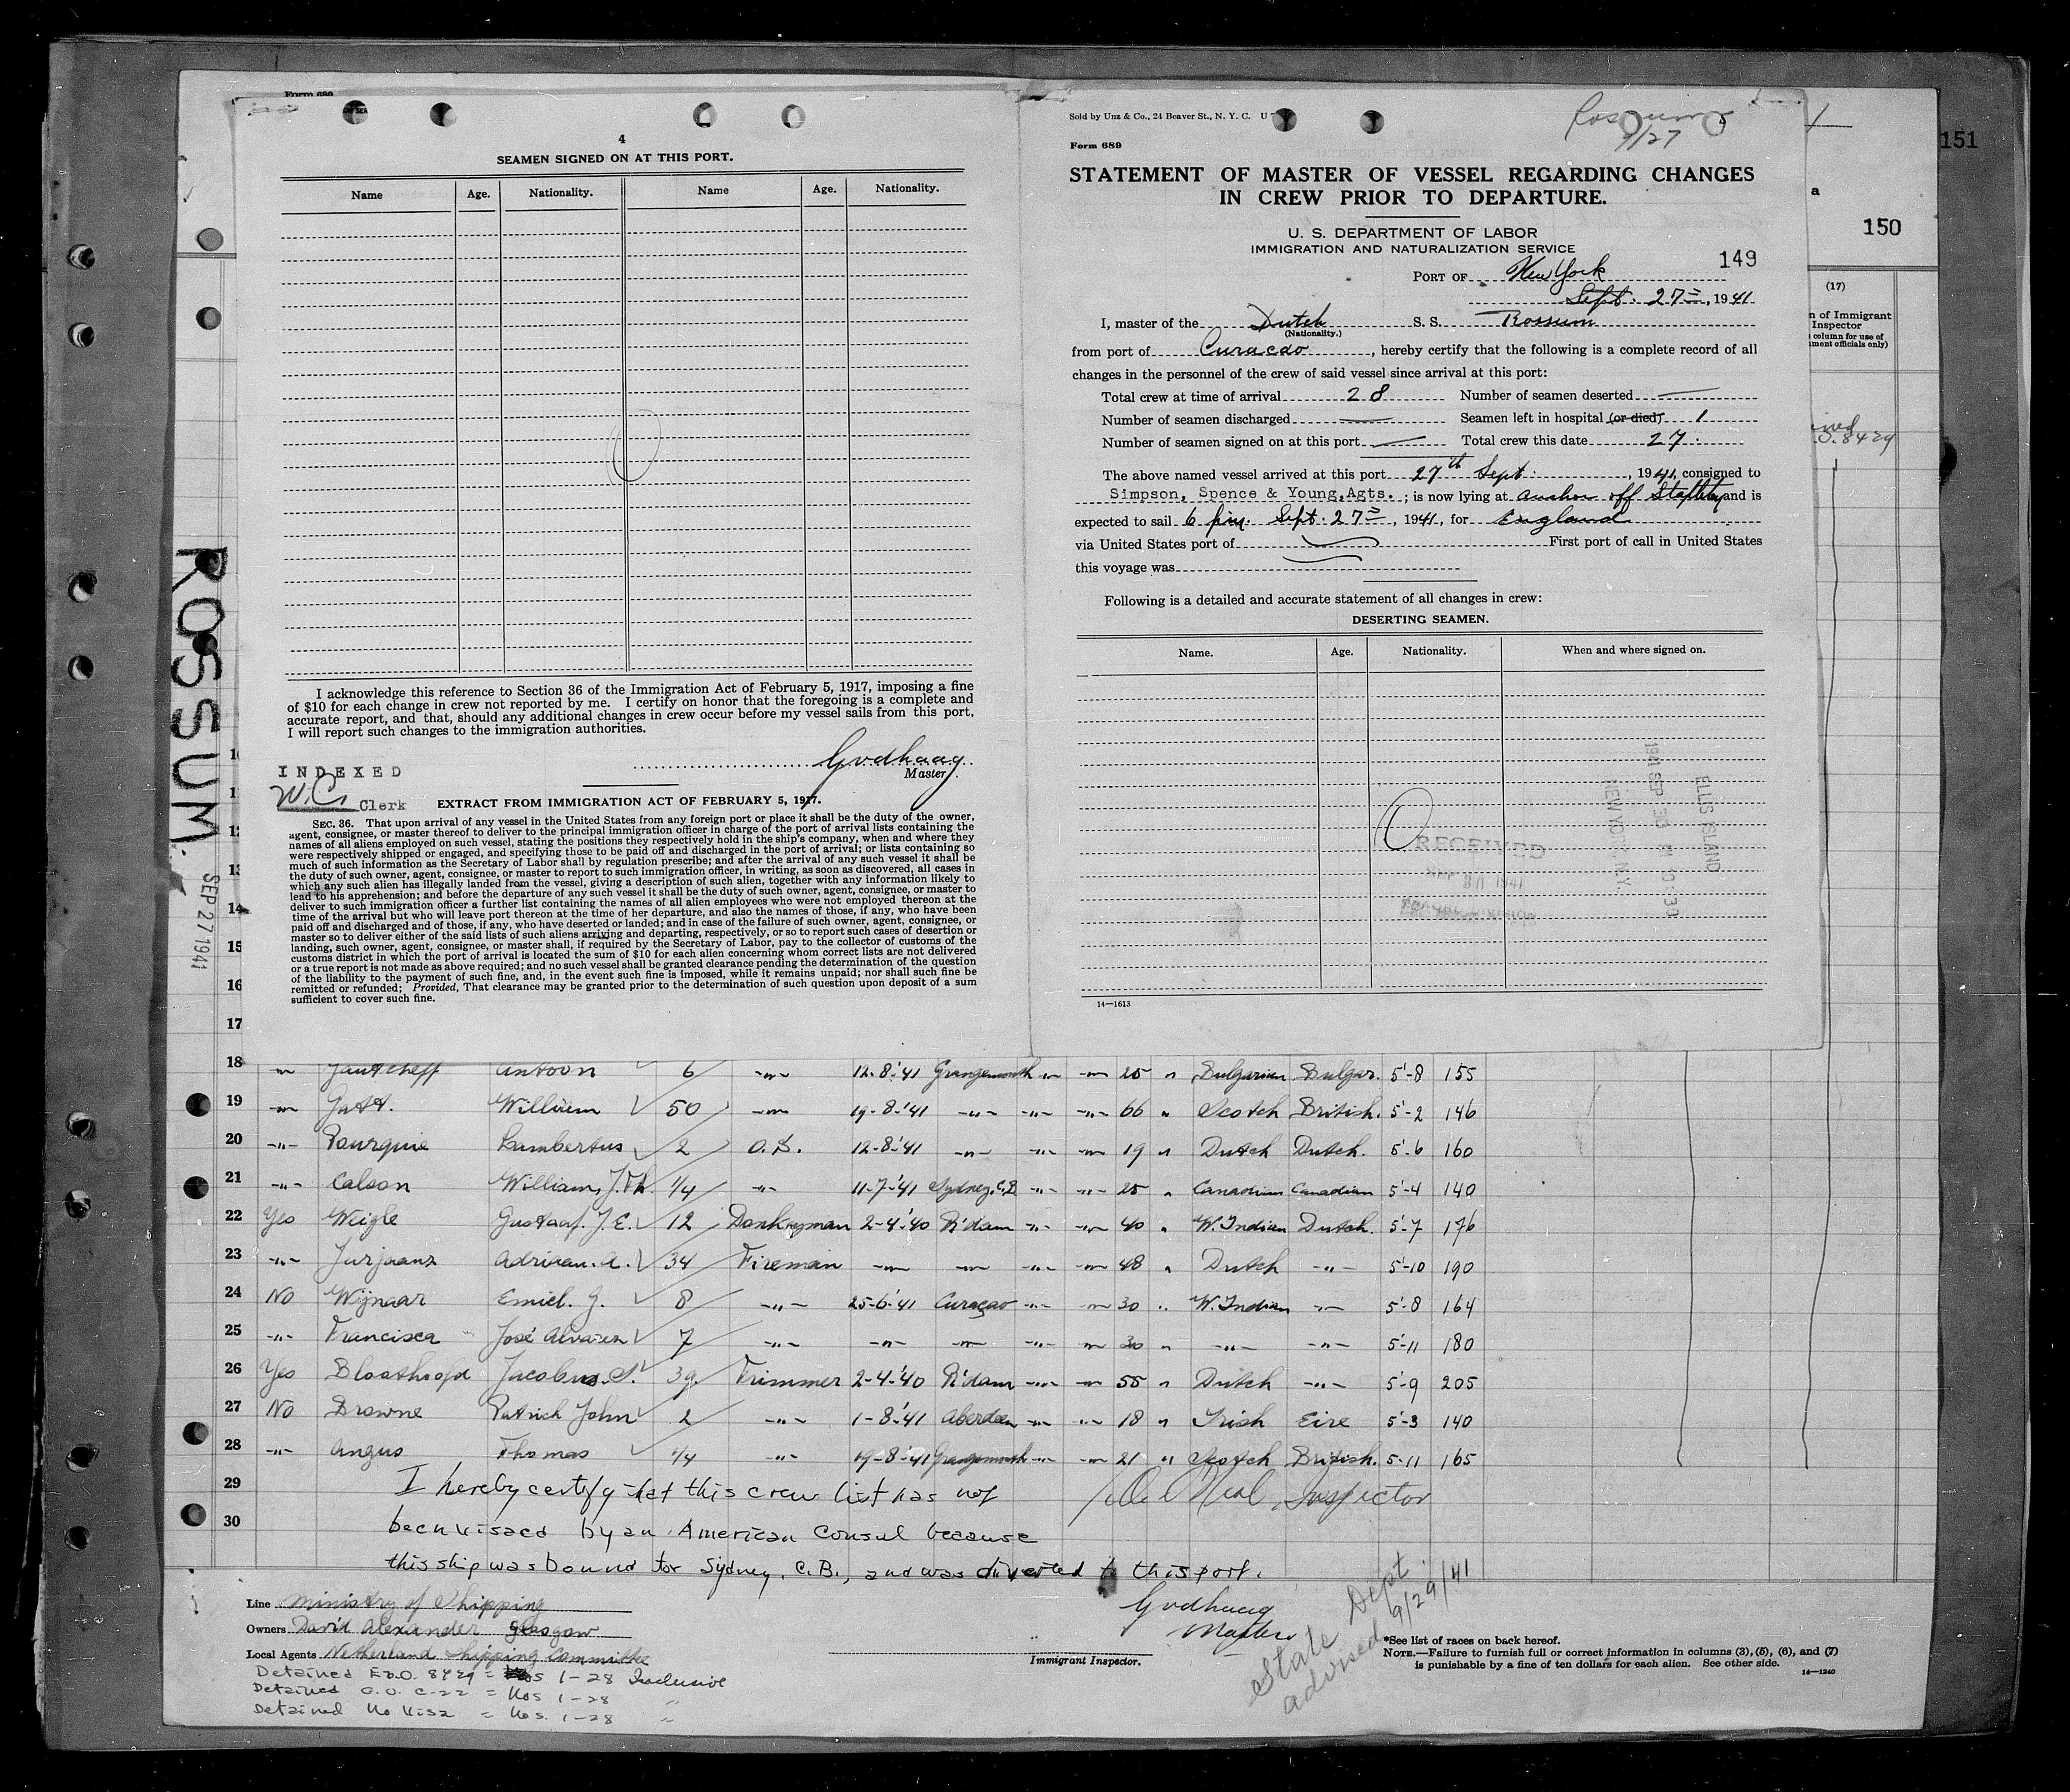 Form 689
4
SEAMEN SIGNED ON AT THIS PORT.
Name Age. Nationality. Name Age. Nationality.
I acknowledge this reference to Section 36 of the Immigration Act of February 5, 1917, imposing a fine
of $10 for each change in crew not reported by me. I certify on honor that the foregoing is a complete and
accurate report, and that, should any additional changes in crew occur before my vessel sails from this port,
I will report such changes to the immigration authorities.
Master.
INDEXED
W.C. Clerk
EXTRACT FROM IMMIGRATION ACT OF FEBRUARY 5, 1917.
SEC. 36. That upon arrival of any vessel in the United States from any foreign port or place it shall be the duty of the owner,
agent, consignee, or master thereof to deliver to the principal immigration officer in charge of the port of arrival lists containing the
names of all aliens employed on such vessel, stating the positions they respectively hold in the ship's company, when and where they
were respectively shipped or engaged, and specifying those to be paid off and discharged in the port of arrival; or lists containing so
much of such information as the Secretary of Labor shall by regulation prescribe; and after the arrival of any such vessel it shall be
the duty of such owner, agent, consignee, or master to report to such immigration officer, in writing, as soon as discovered, all cases in
which any such alien has illegally landed from the vessel, giving a description of such alien, together with any information likely to
lead to his apprehension; and before the departure of any such vessel it shall be the duty of such owner, agent, consignee, or master to
deliver to such immigration officer a further list containing the names of all alien employees who were not employed thereon at the
time of the arrival but who will leave port thereon at the time of her departure, and also the names of those, if any, who have been
paid off and discharged and of those, if any, who have deserted or landed; and in case of the failure of such owner, agent, consignee, or
master so to deliver either of the said lists of such aliens arriving and departing, respectively, or so to report such cases of desertion or
landing, such owner, agent, consignee, or master shall, if required by the Secretary of Labor, pay to the collector of customs of the
customs district in which the port of arrival is located the sum of $10 for each alien concerning whom correct lists are not delivered
or a true report is not made as above required; and no such vessel shall be granted clearance pending the determination of the question
of the liability to the payment of such fine, and, in the event such fine is imposed, while it remains unpaid; nor shall such fine be
remitted or refunded; Provided, That clearance may be granted prior to the determination of such question upon deposit of a sum
sufficient to cover such fine.
Sold by Unz & Co., 24 Beaver St., N. Y. C. U
9/27
Form 689
STATEMENT OF MASTER OF VESSEL REGARDING CHANGES
IN CREW PRIOR TO DEPARTURE.
U. S. DEPARTMENT OF LABOR
IMMIGRATION AND NATURALIZATION SERVICE
149
PORT OF New York
Sept. 27, 1941
I, master of the Dutch S. S. Rossum
(Nationality.)
from port of Curacao, hereby certify that the following is a complete record of all
changes in the personnel of the crew of said vessel since arrival at this port:
Total crew at time of arrival 28 Number of seamen deserted —
Number of seamen discharged — Seamen left in hospital (or died) 1
Number of seamen signed on at this port — Total crew this date 27.
The above named vessel arrived at this port 27th Sept., 1941, consigned to
Simpson, Spence & Young, Agts.; is now lying at anchor off Stapleton and is
expected to sail 6 pm. Sept. 27, 1941, for England
via United States port of First port of call in United States
this voyage was
Following is a detailed and accurate statement of all changes in crew:
DESERTING SEAMEN.
Name. Age. Nationality. When and where signed on.
RECEIVED
SEP 30 1941
ELLIS ISLAND
1941 SEP 30
NEW YORK N.Y.
14—1613
151
a
150
(17)
n of Immigrant
Inspector
column for use of
ment officials only)
8429
ROSSUM.
SEP 27 1941
12
13
14
15
16
17
18 -"- Antoon 6 -"- 12-8-'41 Grangemouth -"- -"- 25 " Bulgarian Bulgar. 5'-8 155
19 -"- William 50 -"- 19-8-'41 -"- -"- -"- 66 " Scotch British. 5'-2 146
20 -"- Lambertus 2 O.S. 12-8-'41 -"- -"- -"- 19 " Dutch Dutch. 5'-6 160
21 -"- Calson William, J.Th. 1/4 -"- 11-7-'41 Sydney, C.B. -"- -"- 25 " Canadian Canadian 5'-4 140
22 Yes Weigle Gustaaf. J.E. 12 Donkeyman 2-4-'40 R'dam -"- -"- 40 " W.Indian Dutch. 5'-7 176
23 -"- Jurjaanz Adriaan. A. 34 Fireman -"- -"- -"- -"- 48 " Dutch -"- 5'-10 190
24 No Wijnaar Emiel. G. 8 -"- 25-6-'41 Curaçao -"- -"- 30 " W.Indian -"- 5'-8 164
25 -"- Francisca José Alvarez 7 -"- -"- -"- -"- -"- 30 " -"- -"- 5'-11 180
26 Yes Bloothoofd Jacobus. 39 Trimmer 2-4-'40 R'dam -"- -"- 55 " Dutch -"- 5'-9 205
27 No Browne Patrick John 2 -"- 1-8-'41 Aberdeen -"- -"- 18 " Irish Eire 5'-3 140
28 -"- Angus Thomas 1/4 -"- 19-8-'41 Grangemouth -"- -"- 21 " Scotch British. 5'-11 165
29 I hereby certify that this crew list has not Inspector
30 been visaed by an American Consul because
this ship was bound for Sydney, C.B., and was diverted to this port.
Master
Line Ministry of Shipping
Owners David Alexander Glasgow
Local Agents Netherland Shipping Committee
Immigrant Inspector.
Detained E.O. 8429 = Nos 1-28 Inclusive
Detained G.O. C-22 = Nos 1-28 "
Detained No Visa = Nos. 1-28 "
State Dept.
advised 9/29/41
*See list of races on back hereof.
NOTE.—Failure to furnish full or correct information in columns (3), (5), (6), and (7)
is punishable by a fine of ten dollars for each alien. See other side.
14—1240